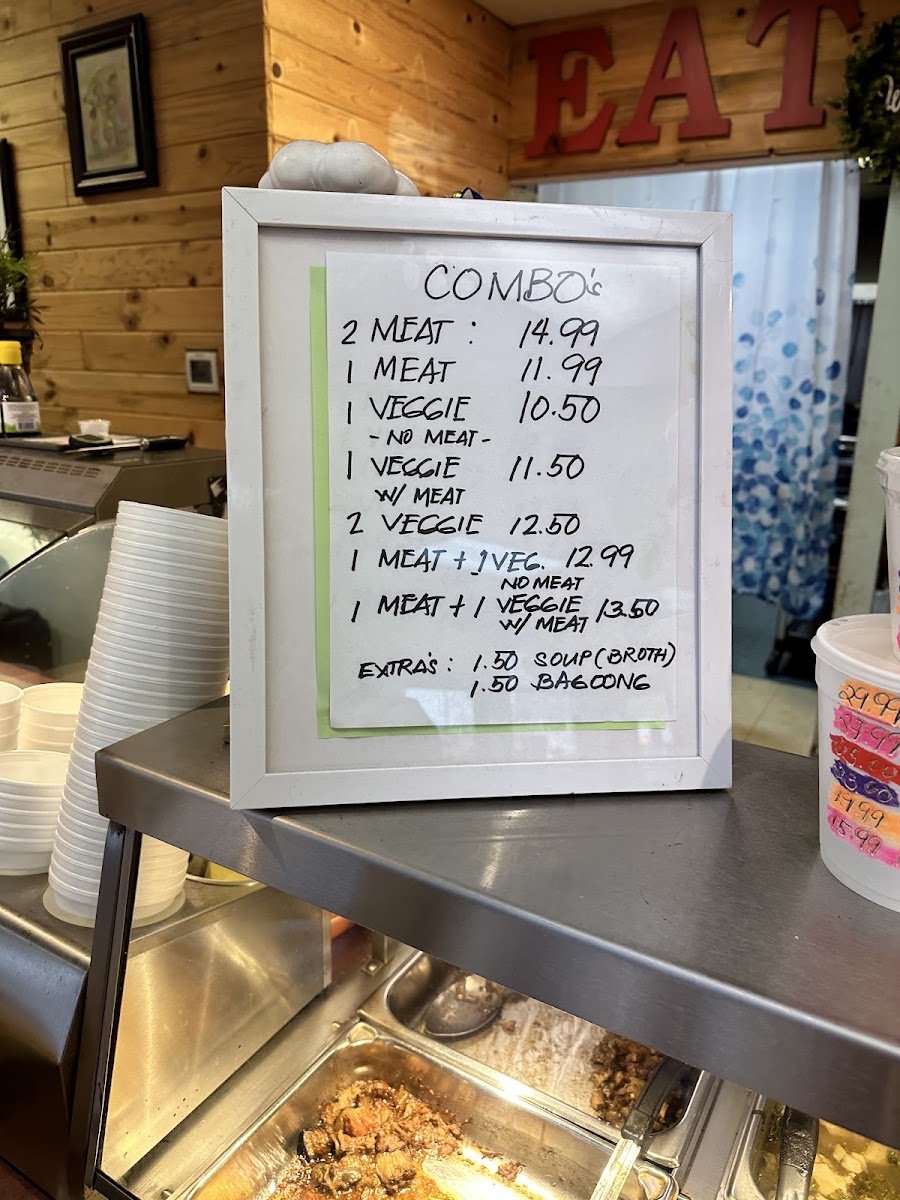 EAT
COMBO's
2 MEAT : 14.99
1 MEAT 11.99
1 VEGGIE 10.50
- NO MEAT -
1 VEGGIE 11.50
W/ MEAT
2 VEGGIE 12.50
1 MEAT + 1 VEG. 12.99
NO MEAT
1 MEAT + 1 VEGGIE 13.50
W/ MEAT
EXTRA'S : 1.50 SOUP (BROTH)
1.50 BAGOONG
29.99
15.99